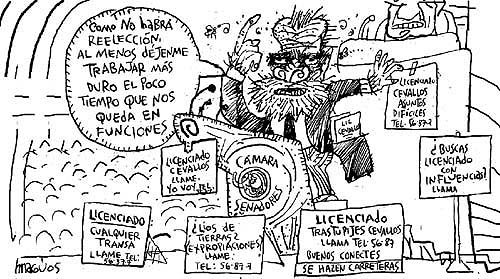 COMO NO HABRÁ
REELECCIÓN,
AL MENOS DÉJENME
TRABAJAR MÁS
DURO EL POCO
TIEMPO QUE NOS
QUEDA EN
FUNCIONES
LICENCIADO
CEVALLOS
ASUNTOS
DIFÍCILES
TEL: 56-87-7
LIC
CEVALLOS
LICENCIADO
CEVALLOS
LLAME
YO VOY
CÁMARA
SENADORES
¿BUSCAS
LICENCIADO
CON
INFLUENCIAS?
LLAMA
LICENCIADO
CUALQUIER
TRANSA
LLAME TEL:
¿LÍOS DE
TIERRAS?
¿EXPROPIACIONES?
LLAME:
TEL: 56-87-7
LICENCIADO
TRASTUPIJES CEVALLOS
LLAMA TEL 56-87
BUENOS CONECTES
SE HACEN CARRETERAS
MAGÚOS